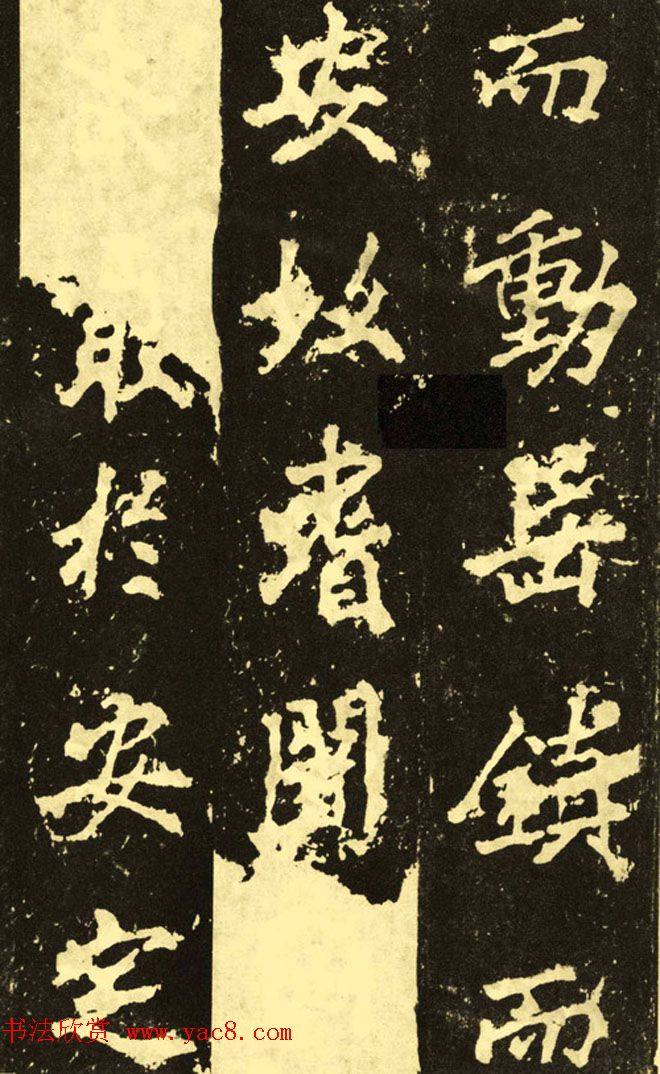 而動岳鎮而
安故耆闍
取於安定
书法欣赏 www.yac8.com